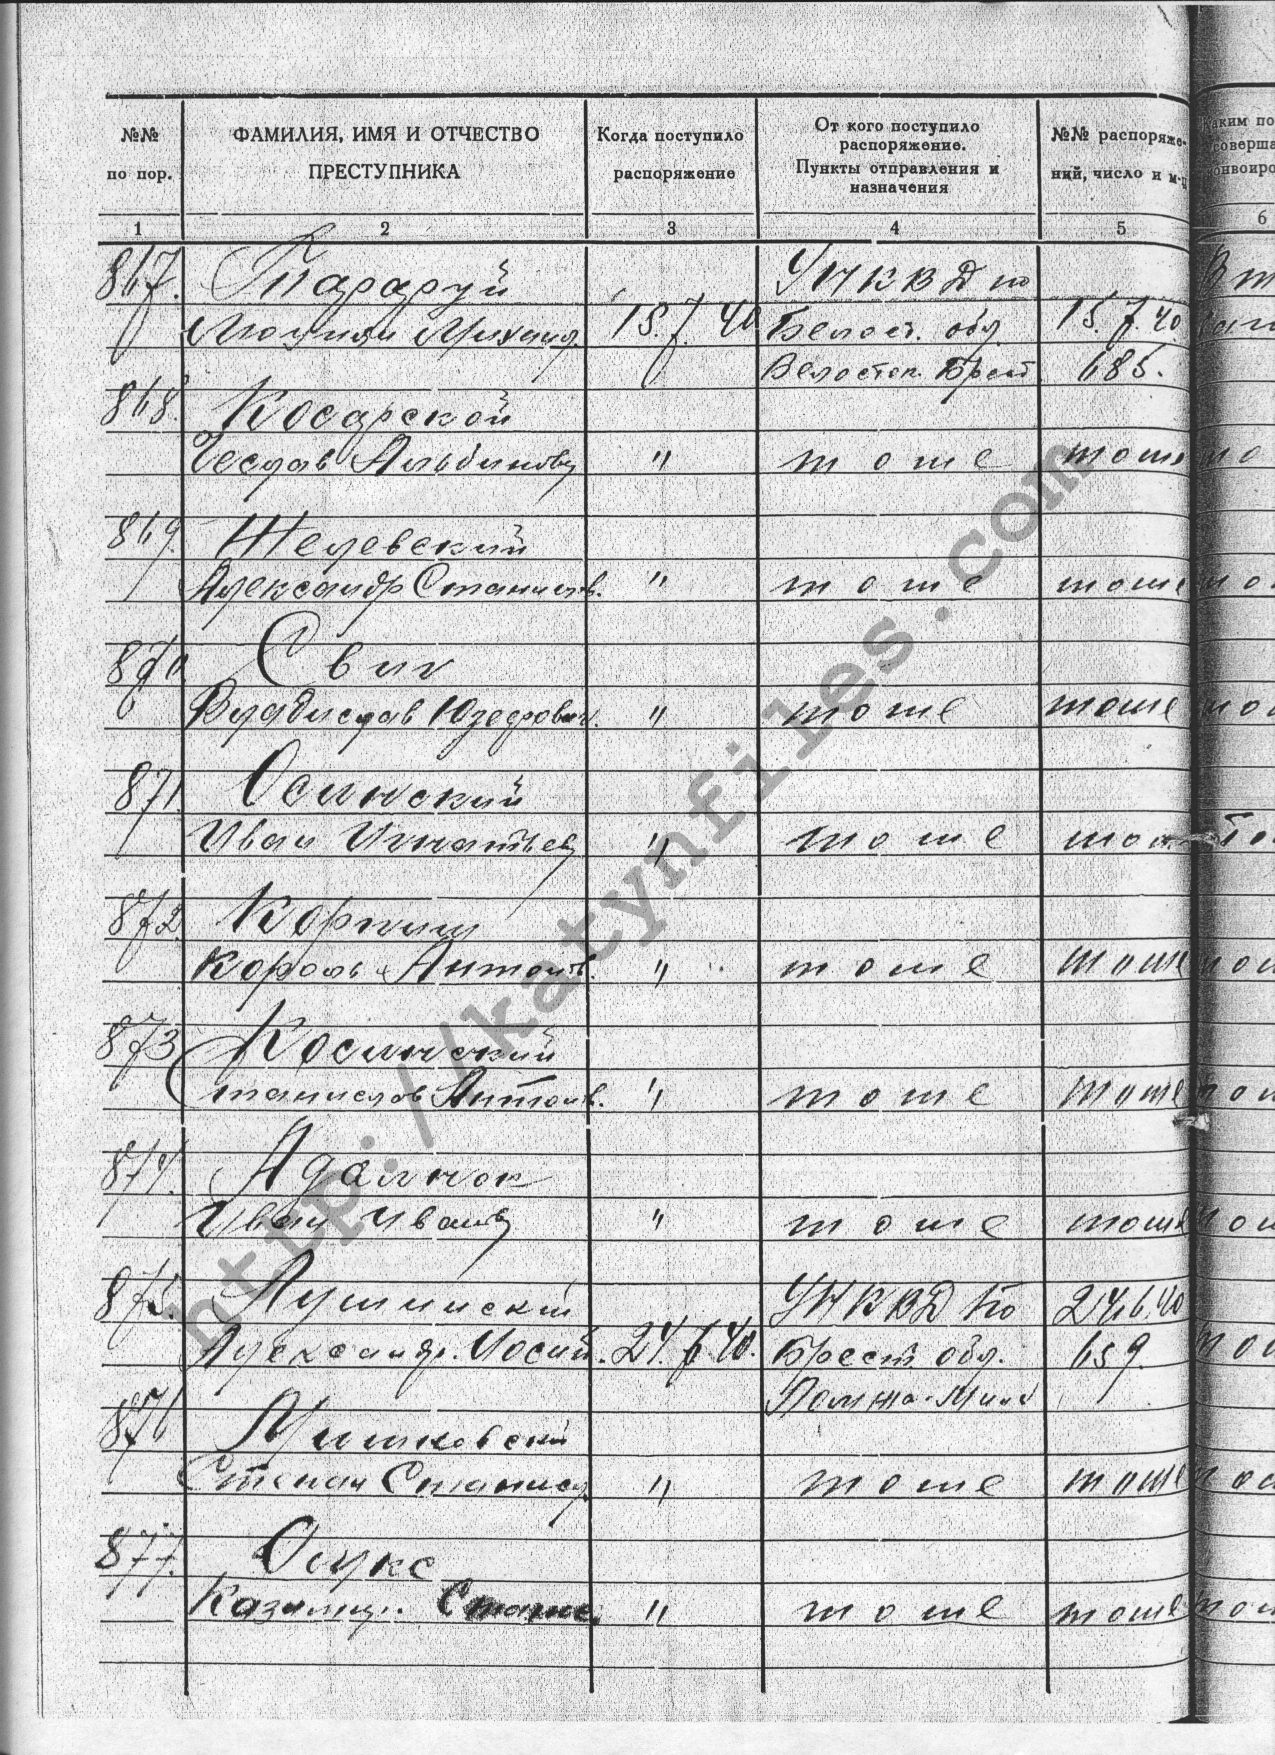 №№ по пор.
ФАМИЛИЯ, ИМЯ И ОТЧЕСТВО ПРЕСТУПНИКА
Когда поступило распоряжение
От кого поступило распоряжение. Пункты отправления и назначения
№№ распоряже- ний, число и м-ц
аким по
соверша
онвоиро
1 2 3 4 5 6
867. Тараруй УНКВД по
Михаил. 15.7.40 Белост. обл. 15.7.40
Белосток Брест 685.
868. Косарской
Чеслав Альбинов " тоже тоже
869. Желевский
Александр Станислав. " тоже тоже
870. Свич
Владислав Юзефович. " тоже тоже
871. Осинский
Иван Игнатьев " тоже
872. Корпиш
Кароль Антонов. " тоже тоже
873 Косинский
Станислав Антонов. " тоже тоже
874. Адамчок
Иван Иванов " тоже тоже
875. УНКВД по 24.6.40
Александр. Иосиф. 24.6.40. Брест обл. 659.
876 Мишковский
Степан Станисл. " тоже тоже
877. Олукс
Казимир. Стание. " тоже тоже
http://katynfiles.com